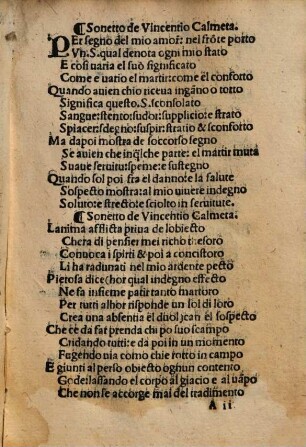 ¶ Sonetto de Vincentio Calmeta.
PEr segno del mio amor: nel frōte porto
Vn. S. qual denota ogni mio stato
E cosi uaria el suo significato
Come e uario el martir: come el conforto
Quando auien chio riceua ingāno o torto
Significa questo. S. sconsolato
Sangue: stento: sudor: supplicio: e strato
Spiacer: sdegno: suspir: stratio & sconforto
Ma dapoi mostra de soccorso segno
Se auien che inq̄lche parte: el martir muta
Suaue seruitu: sperne: e sustegno
Quando sol poi fra el danno: e la salute
Sospecto mostra: al mio uiuere indegno
Soluto: e strecto: e sciolto in seruitute.
¶ Sonetto de Vincentio Calmeta.
Lanima afflicta priua de lobiecto
Chera di pensier mei richo thesoro
Conuoca i spirti & poi a concistoro
Li ha radunati nel mio ardente pecto
Pietosa dice chor qual indegno effecto
Ne fa insieme patir tanto martoro
Per tutti alhor risponde un sol di loro
Crea una absentia el duol jean el sospecto
Che te da fat prenda chi po suo scampo
Cridando tutti: e da poi in un momento
Fugendo uia como chie rotto in campo
E giunti al perso obiecto ognun contento
Gode: lassando el corpo al giacio e al uāpo
Che non se accorge mai del tradimento
A ii